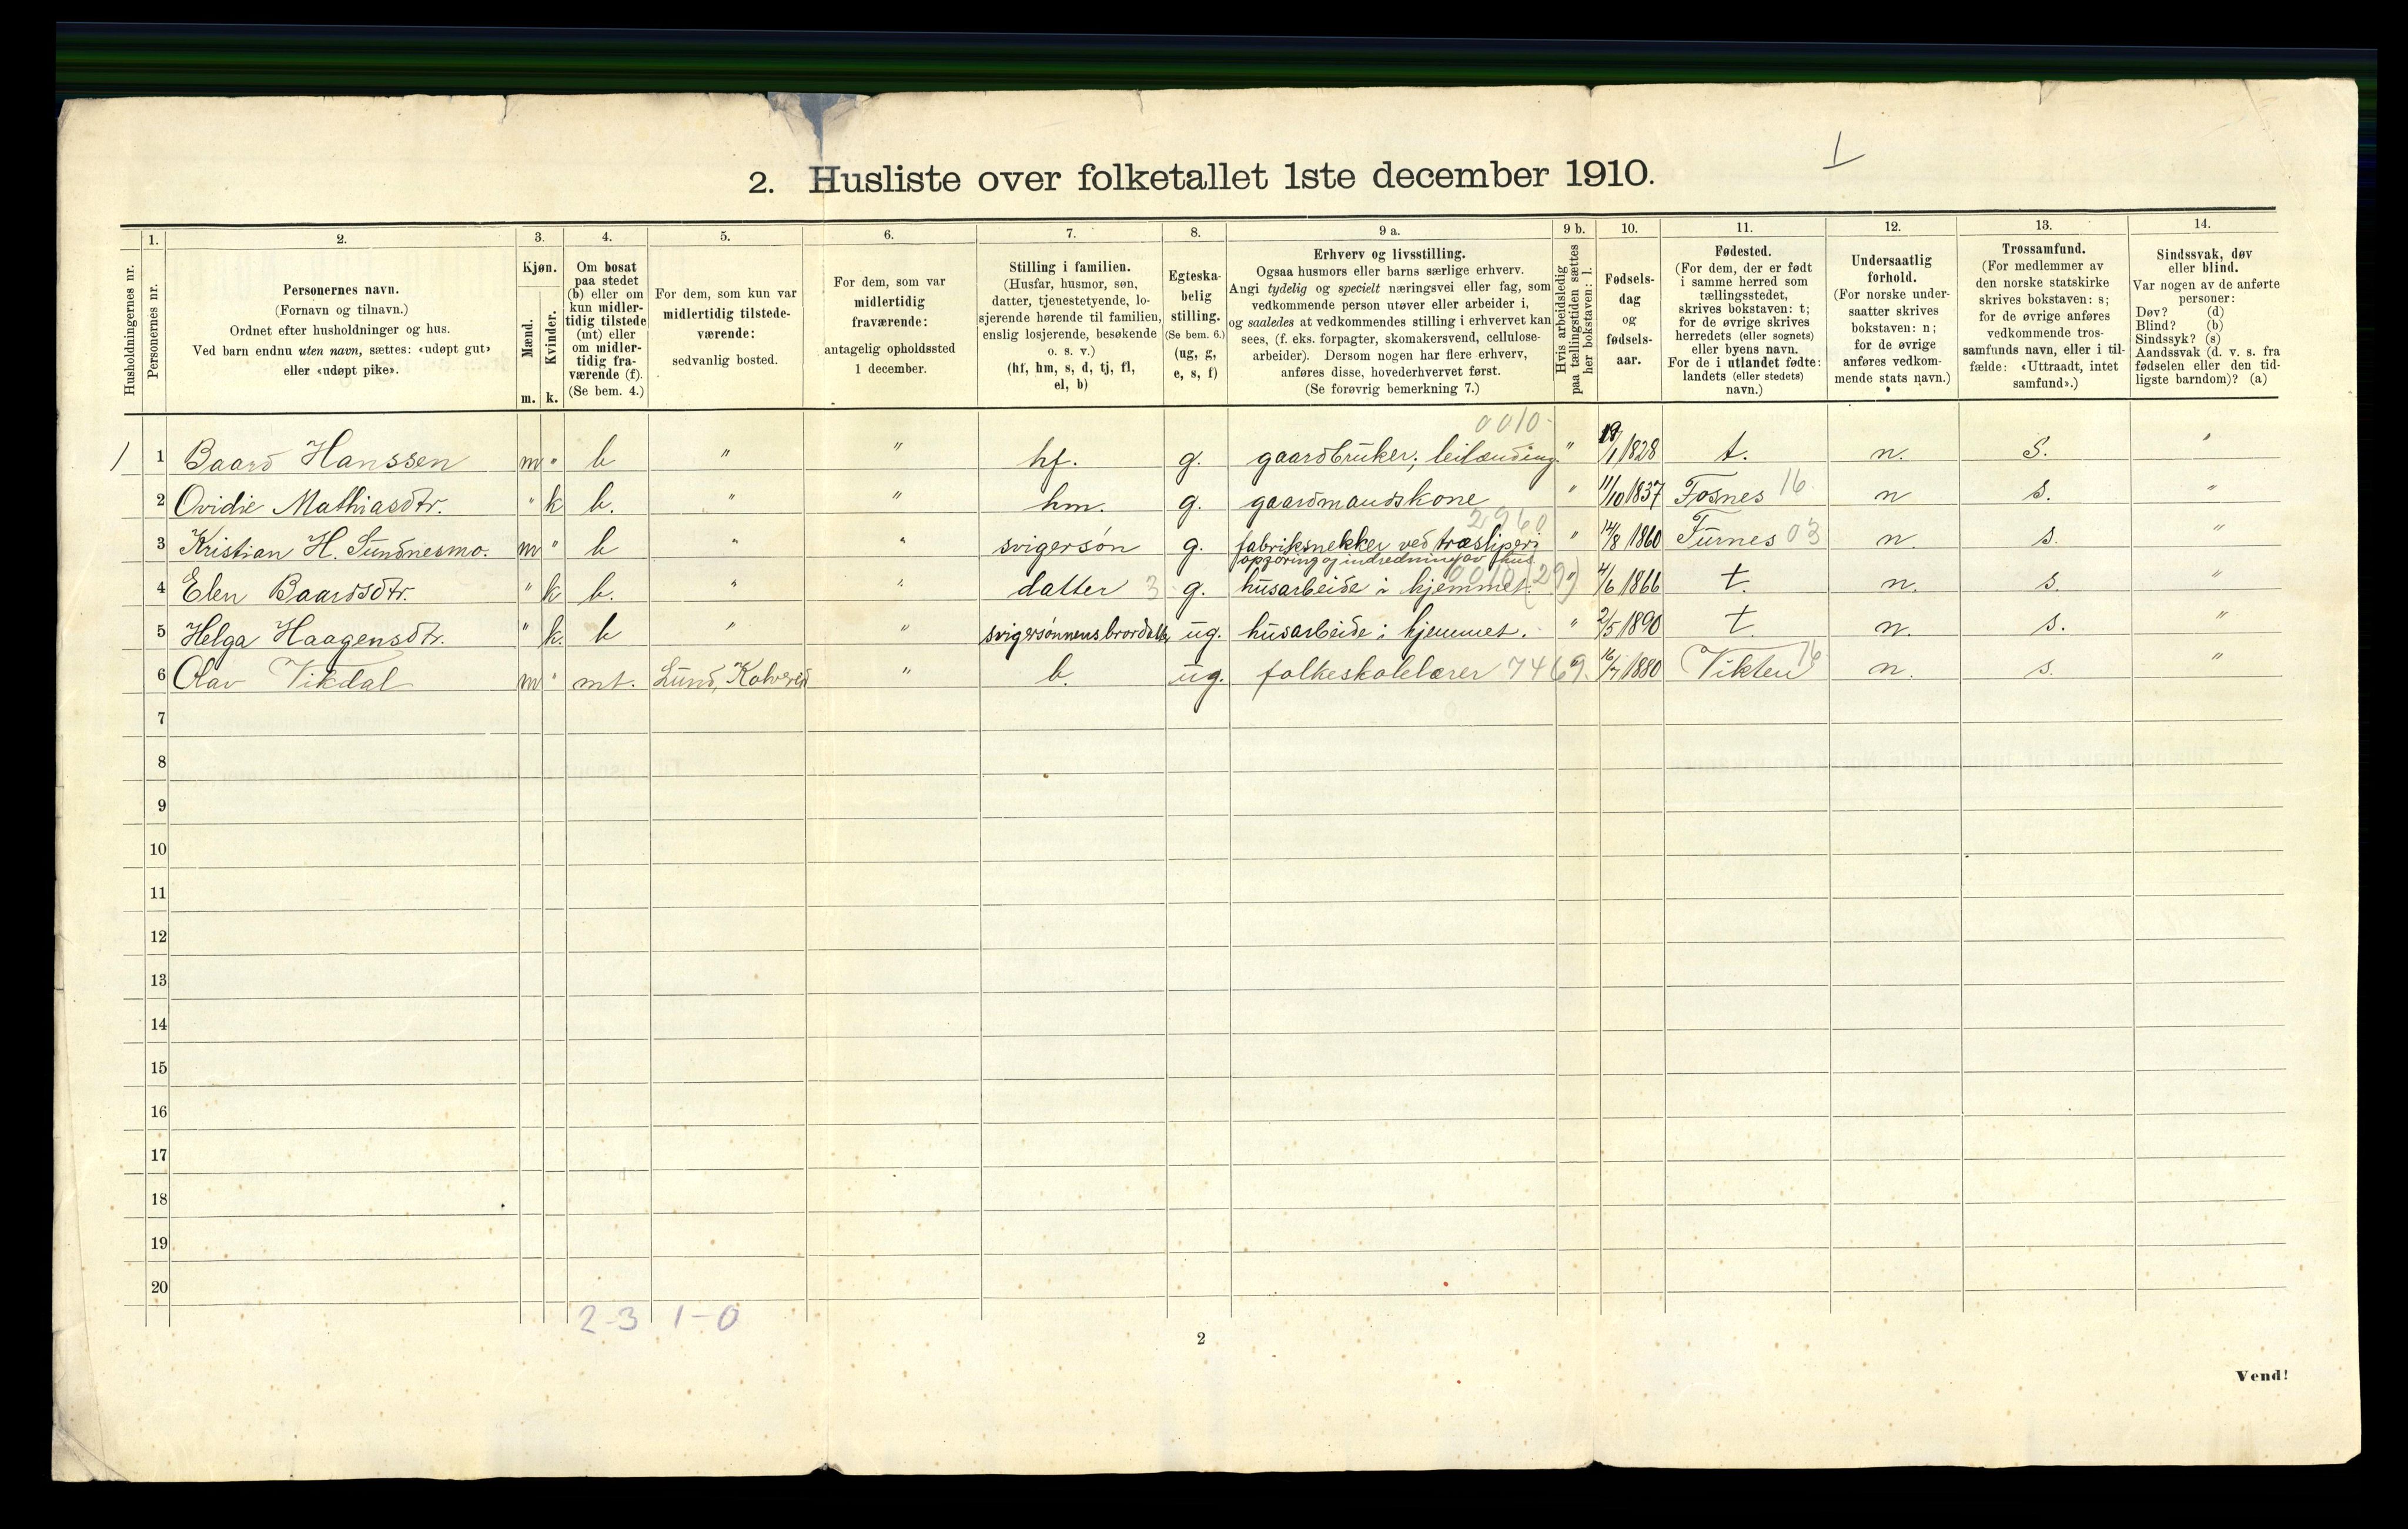 1
2. Husliste over folketallet 1ste december 1910.
Husholdningernes nr.
1.
Personernes nr.
2.
Personernes navn.
(Fornavn og tilnavn.)
Ordnet efter husholdninger og hus.
Ved barn endnu uten navn, sættes: «udøpt gut»
eller «udøpt pike».
3.
Kjøn.
Mænd.
Kvinder.
m. k.
4.
Om bosat
paa stedet
(b) eller om
kun midler-
tidig tilstede
(mt) eller
om midler-
tidig fra-
værende (f).
(Se bem. 4.)
5.
For dem, som kun var
midlertidig tilstede-
værende:
sedvanlig bosted.
6.
For dem, som var
midlertidig
fraværende:
antagelig opholdssted
1 december.
7.
Stilling i familien.
(Husfar, husmor, søn,
datter, tjenestetyende, lo-
sjerende hørende til familien,
enslig losjerende, besøkende
o. s. v.)
(hf, hm, s, d, tj, fl,
el, b)
8.
Egteska-
belig
stilling.
(Se bem. 6.)
(ug, g,
e, s, f)
9 a.
Erhverv og livsstilling.
Ogsaa husmors eller barns særlige erhverv.
Angi tydelig og specielt næringsvei eller fag, som
vedkommende person utøver eller arbeider i,
og saaledes at vedkommendes stilling i erhvervet kan
sees, (f. eks. forpagter, skomakersvend, cellulose-
arbeider). Dersom nogen har flere erhverv,
anføres disse, hovederhvervet først.
(Se forøvrig bemerkning 7.)
9 b.
Hvis arbeidsledig
paa tællingstiden sættes
her bokstaven: l.
10.
Fødsels-
dag
og
fødsels-
aar.
11.
Fødested.
(For dem, der er født
i samme herred som
tællingsstedet,
skrives bokstaven: t;
for de øvrige skrives
herredets (eller sognets)
eller byens navn.
For de i utlandet fødte:
landets (eller stedets)
navn.)
12.
Undersaatlig
forhold.
(For norske under-
saatter skrives
bokstaven: n;
for de øvrige
anføres vedkom-
mende stats navn.)
13.
Trossamfund.
(For medlemmer av
den norske statskirke
skrives bokstaven: s;
for de øvrige anføres
vedkommende tros-
samfunds navn, eller i til-
fælde: «Uttraadt, intet
samfund».)
14.
Sindssvak, døv
eller blind.
Var nogen av de anførte
personer:
Døv? (d)
Blind? (b)
Sindssyk? (s)
Aandssvak (d. v. s. fra
fødselen eller den tid-
ligste barndom)? (a)
0010
1 1 Baard Hanssen m " b " " hf. g. gaardbruker, leilænding. " 19/1 1828 t. n. s. "
2 Ovidie Mathiasdtr. " k b. " " hm. g. gaardmandskone " 11/10 1837 Fosnes 16 n s. "
2960
3 Kristian H. Sundnesmo. m " b " " svigersøn g. fabriksnekker ved træsliperi " 14/8 1860 Furnes 03 n. s. "
opføring og indredning av hus
4 Elen Baardsdtr. " k b. " " datter 3 g. husarbeide i hjemmet. 0010 (29) " 4/6 1866 t. n. s. "
5 Helga Haagensdtr. " k. b " " svigersønnens brordatter ug. husarbeide i hjemmet. " 2/5 1890 t. n. s. "
6 Olav Vikdal m " mt. Lund, Kolvereid " b. ug. folkeskolelærer 7469. 16/7 1880 Vikten 16 n. s. "
7
8
9
10
11
12
13
14
15
16
17
18
19
20
2-3 1-0
2
Vend!